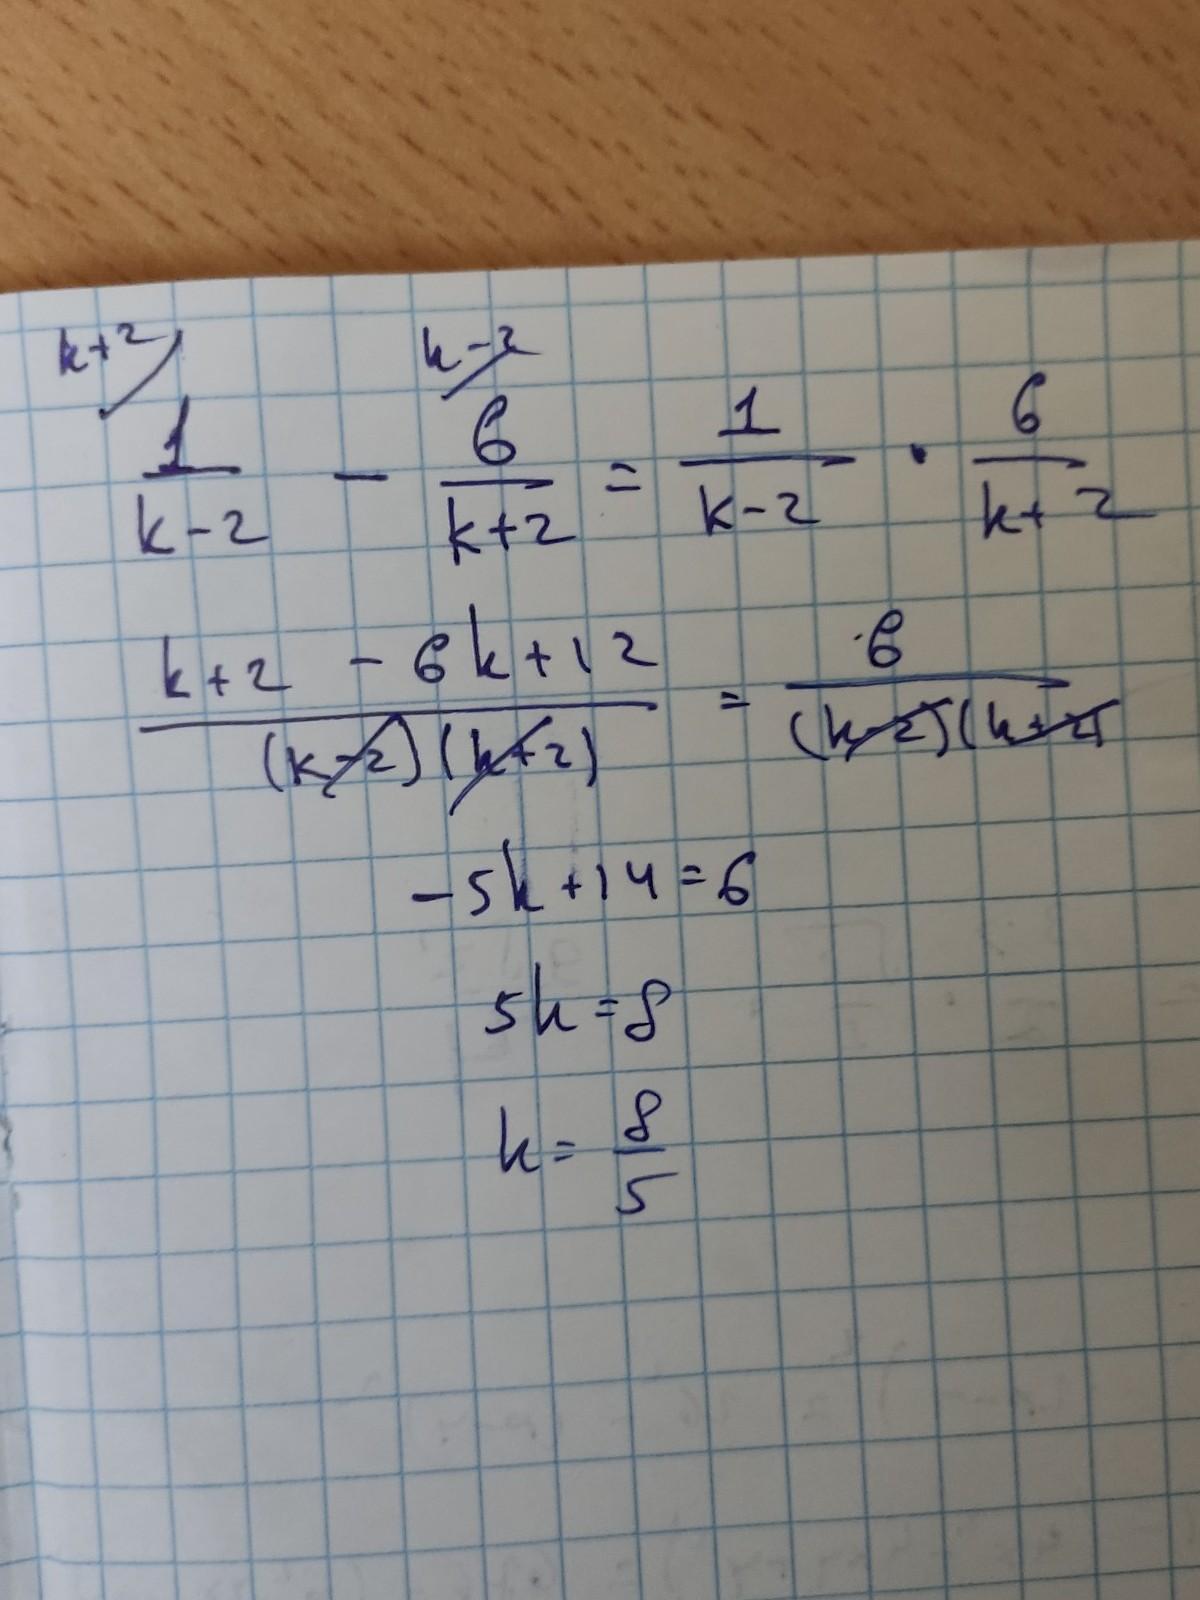 k+2 k-2
1/(k-2) - 6/(k+2) = 1/(k-2) · 6/(k+2)
(k+2 - 6k+12)/((k-2)(k+2)) = 6/((k-2)(k+2))
-5k+14=6
5k=8
k=8/5